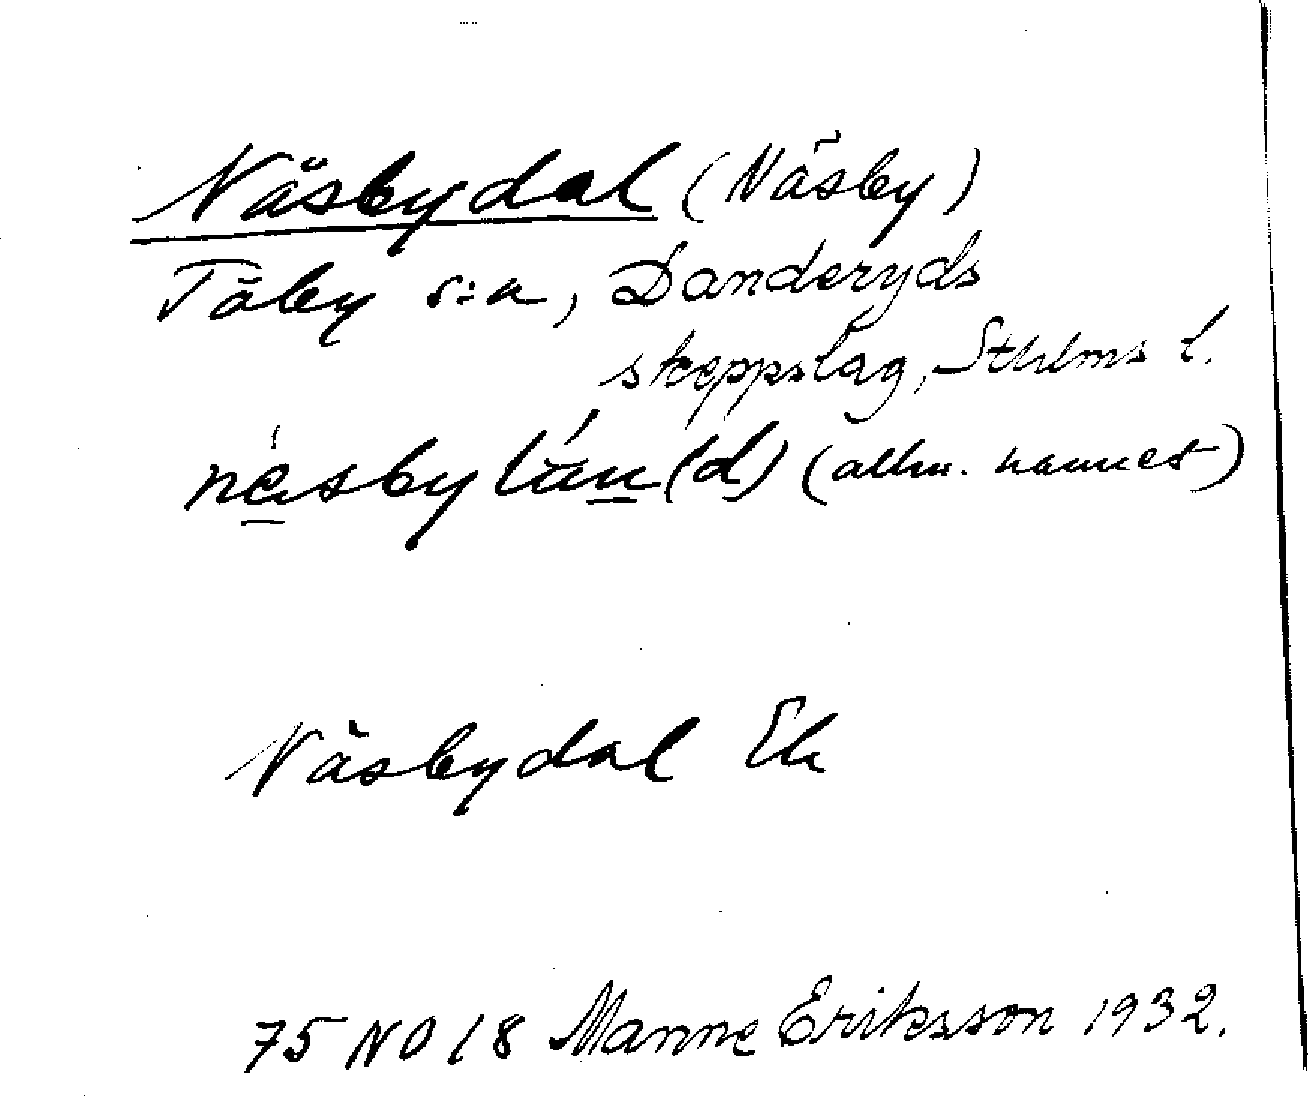 Näsbydal (Näsby)
Täby s:n, Danderyds
skeppslag, Sthlms l.
näsbylán(d) (allm. namnet)
Näsbydal Ek
75 NO 18 Manne Eriksson 1932.